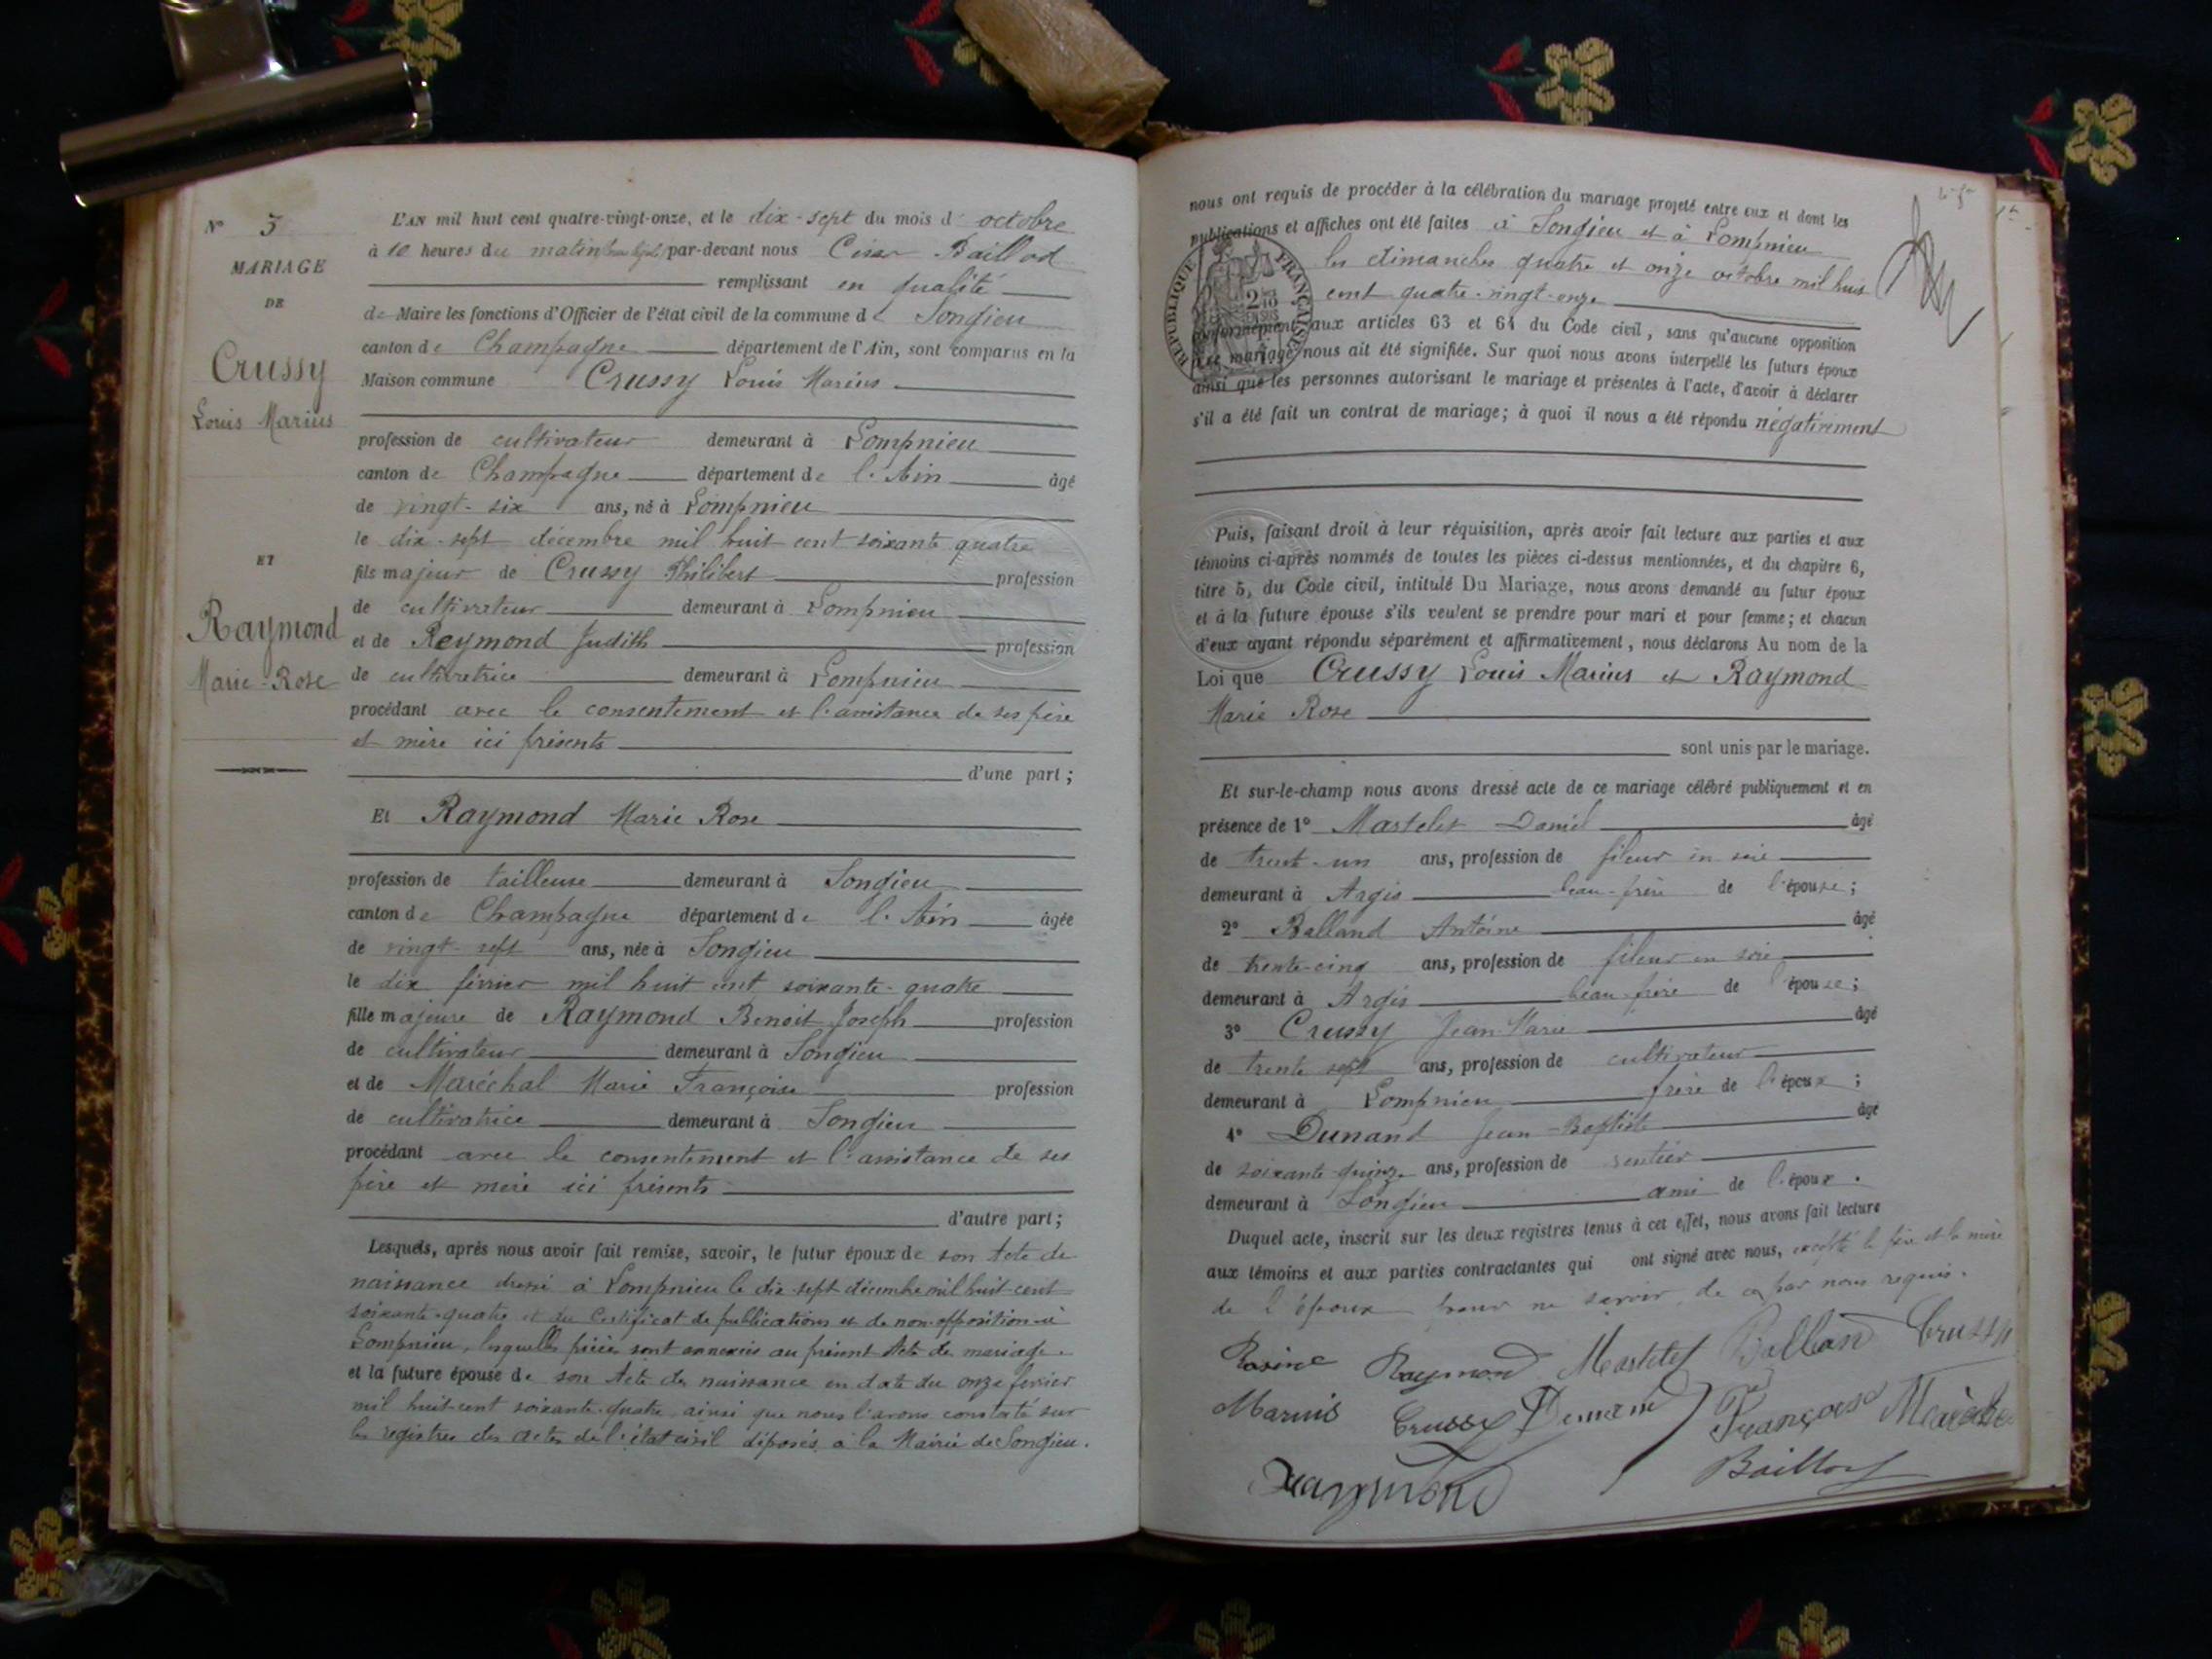 N° 3
MARIAGE
DE
Crussy
Louis Marius
ET
Raymond
Marie-Rose
L'AN mil huit cent quatre-vingt-onze, et le dix-sept du mois d' octobre
à 10 heures du matin par-devant nous César Baillod
remplissant en qualité
de Maire les fonctions d'Officier de l'état civil de la commune de Songieu
canton de Champagne département de l'Ain, sont comparus en la
Maison commune Crussy Louis Marius
profession de cultivateur demeurant à Lompnieu
canton de Champagne département de l'Ain âgé
de vingt-six ans, né à Lompnieu
le dix-sept décembre mil huit cent soixante quatre
fils majeur de Crussy Philibert profession
de cultivateur demeurant à Lompnieu
et de Reymond Judith profession
de cultivatrice demeurant à Lompnieu
procédant avec le consentement et l'assistance de ses père
et mère ici présents
d'une part;
Et Raymond Marie Rose
profession de tailleuse demeurant à Songieu
canton de Champagne département de l'Ain âgée
de vingt-sept ans, née à Songieu
le dix février mil huit cent soixante-quatre
fille majeure de Raymond Benoit Joseph profession
de cultivateur demeurant à Songieu
et de Maréchal Marie Françoise profession
de cultivatrice demeurant à Songieu
procédant avec le consentement et l'assistance de ses
père et mère ici présents
d'autre part;
Lesquels, après nous avoir fait remise, savoir, le futur époux de son Acte de
naissance dressé à Lompnieu le dix-sept décembre mil huit cent
soixante-quatre et du Certificat de publications et de non-opposition à
Lompnieu, lesquelles pièces sont annexées au présent Acte de mariage.
et la future épouse de son Acte de naissance en date du onze février
mil huit-cent soixante-quatre ainsi que nous l'avons constaté sur
les registres des actes de l'état civil déposés à la Mairie de Songieu.
nous ont requis de procéder à la célébration du mariage projeté entre eux et dont les
publications et affiches ont été faites à Songieu et à Lompnieu
les dimanches quatre et onze octobre mil huit
cent quatre-vingt-onze
RÉPUBLIQUE FRANÇAISE
conformément aux articles 63 et 64 du Code civil, sans qu'aucune opposition
à ce mariage nous ait été signifiée. Sur quoi nous avons interpellé les futurs époux
ainsi que les personnes autorisant le mariage et présentes à l'acte, d'avoir à déclarer
s'il a été fait un contrat de mariage; à quoi il nous a été répondu négativement
Puis, faisant droit à leur réquisition, après avoir fait lecture aux parties et aux
témoins ci-après nommés de toutes les pièces ci-dessus mentionnées, et du chapitre 6,
titre 5, du Code civil, intitulé Du Mariage, nous avons demandé au futur époux
et à la future épouse s'ils veulent se prendre pour mari et pour femme; et chacun
d'eux ayant répondu séparément et affirmativement, nous déclarons Au nom de la
Loi que Crussy Louis Marius et Raymond
Marie Rose
sont unis par le mariage.
Et sur-le-champ nous avons dressé acte de ce mariage célébré publiquement et en
présence de 1° Mastelet Daniel âgé
de trente-un ans, profession de fileur en soie
demeurant à Argis beau-frère de l'épouse;
2° Balland Antoine âgé
de trente-cinq ans, profession de fileur en soie
demeurant à Argis beau-frère de l'épouse;
3° Crussy Jean-Marie âgé
de trente sept ans, profession de cultivateur
demeurant à Lompnieu frère de l'époux;
4° Dunand Jean-Baptiste âgé
de soixante-quinze ans, profession de rentier
demeurant à Songieu ami de l'époux.
Duquel acte, inscrit sur les deux registres tenus à cet effet, nous avons fait lecture
aux témoins et aux parties contractantes qui ont signé avec nous, excepté le père et la mère
de l'époux pour ne savoir, de ce par nous requis.
Rosine Raymond Mastelet Balland Crussy
Marius Crussy Dunand Françoise Maréchal
Raymond Baillod